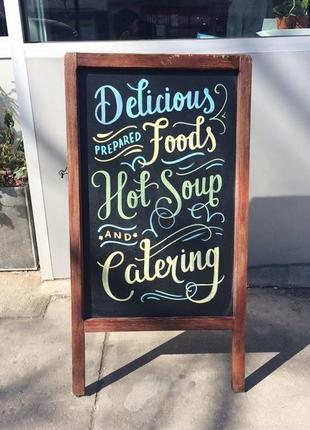 Delicious
PREPARED Foods
Hot Soup
AND
Catering